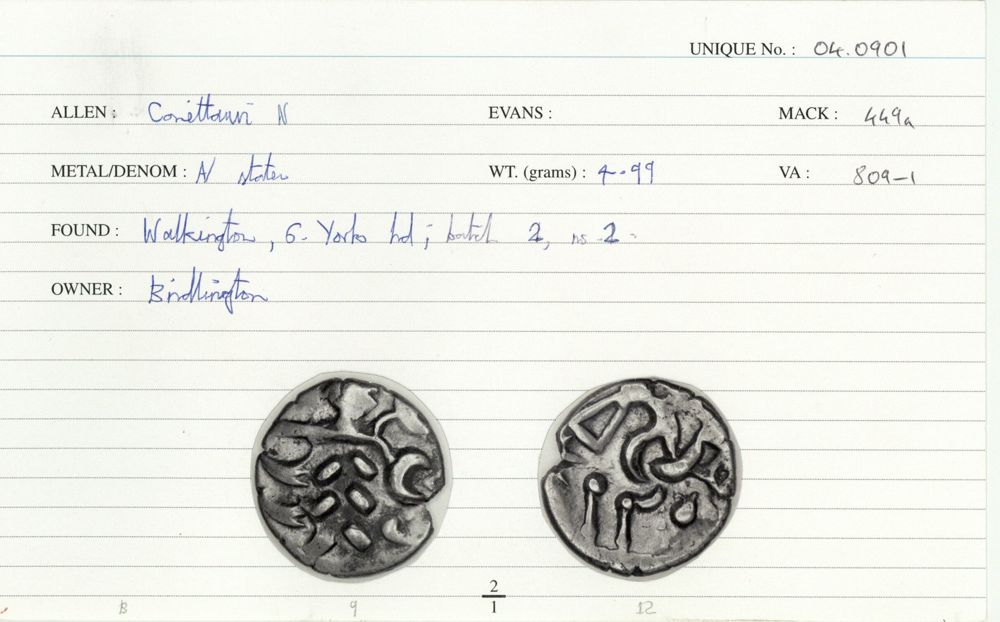 UNIQUE No. : 04.0901
ALLEN : Corieltauvi N EVANS : MACK : 449a
METAL/DENOM : N stater WT. (grams) : 4.99 VA : 809-1
FOUND : Walkington, E. Yorks hd; batch 2, no. 2.
OWNER : Bridlington
2
1
B 9 12